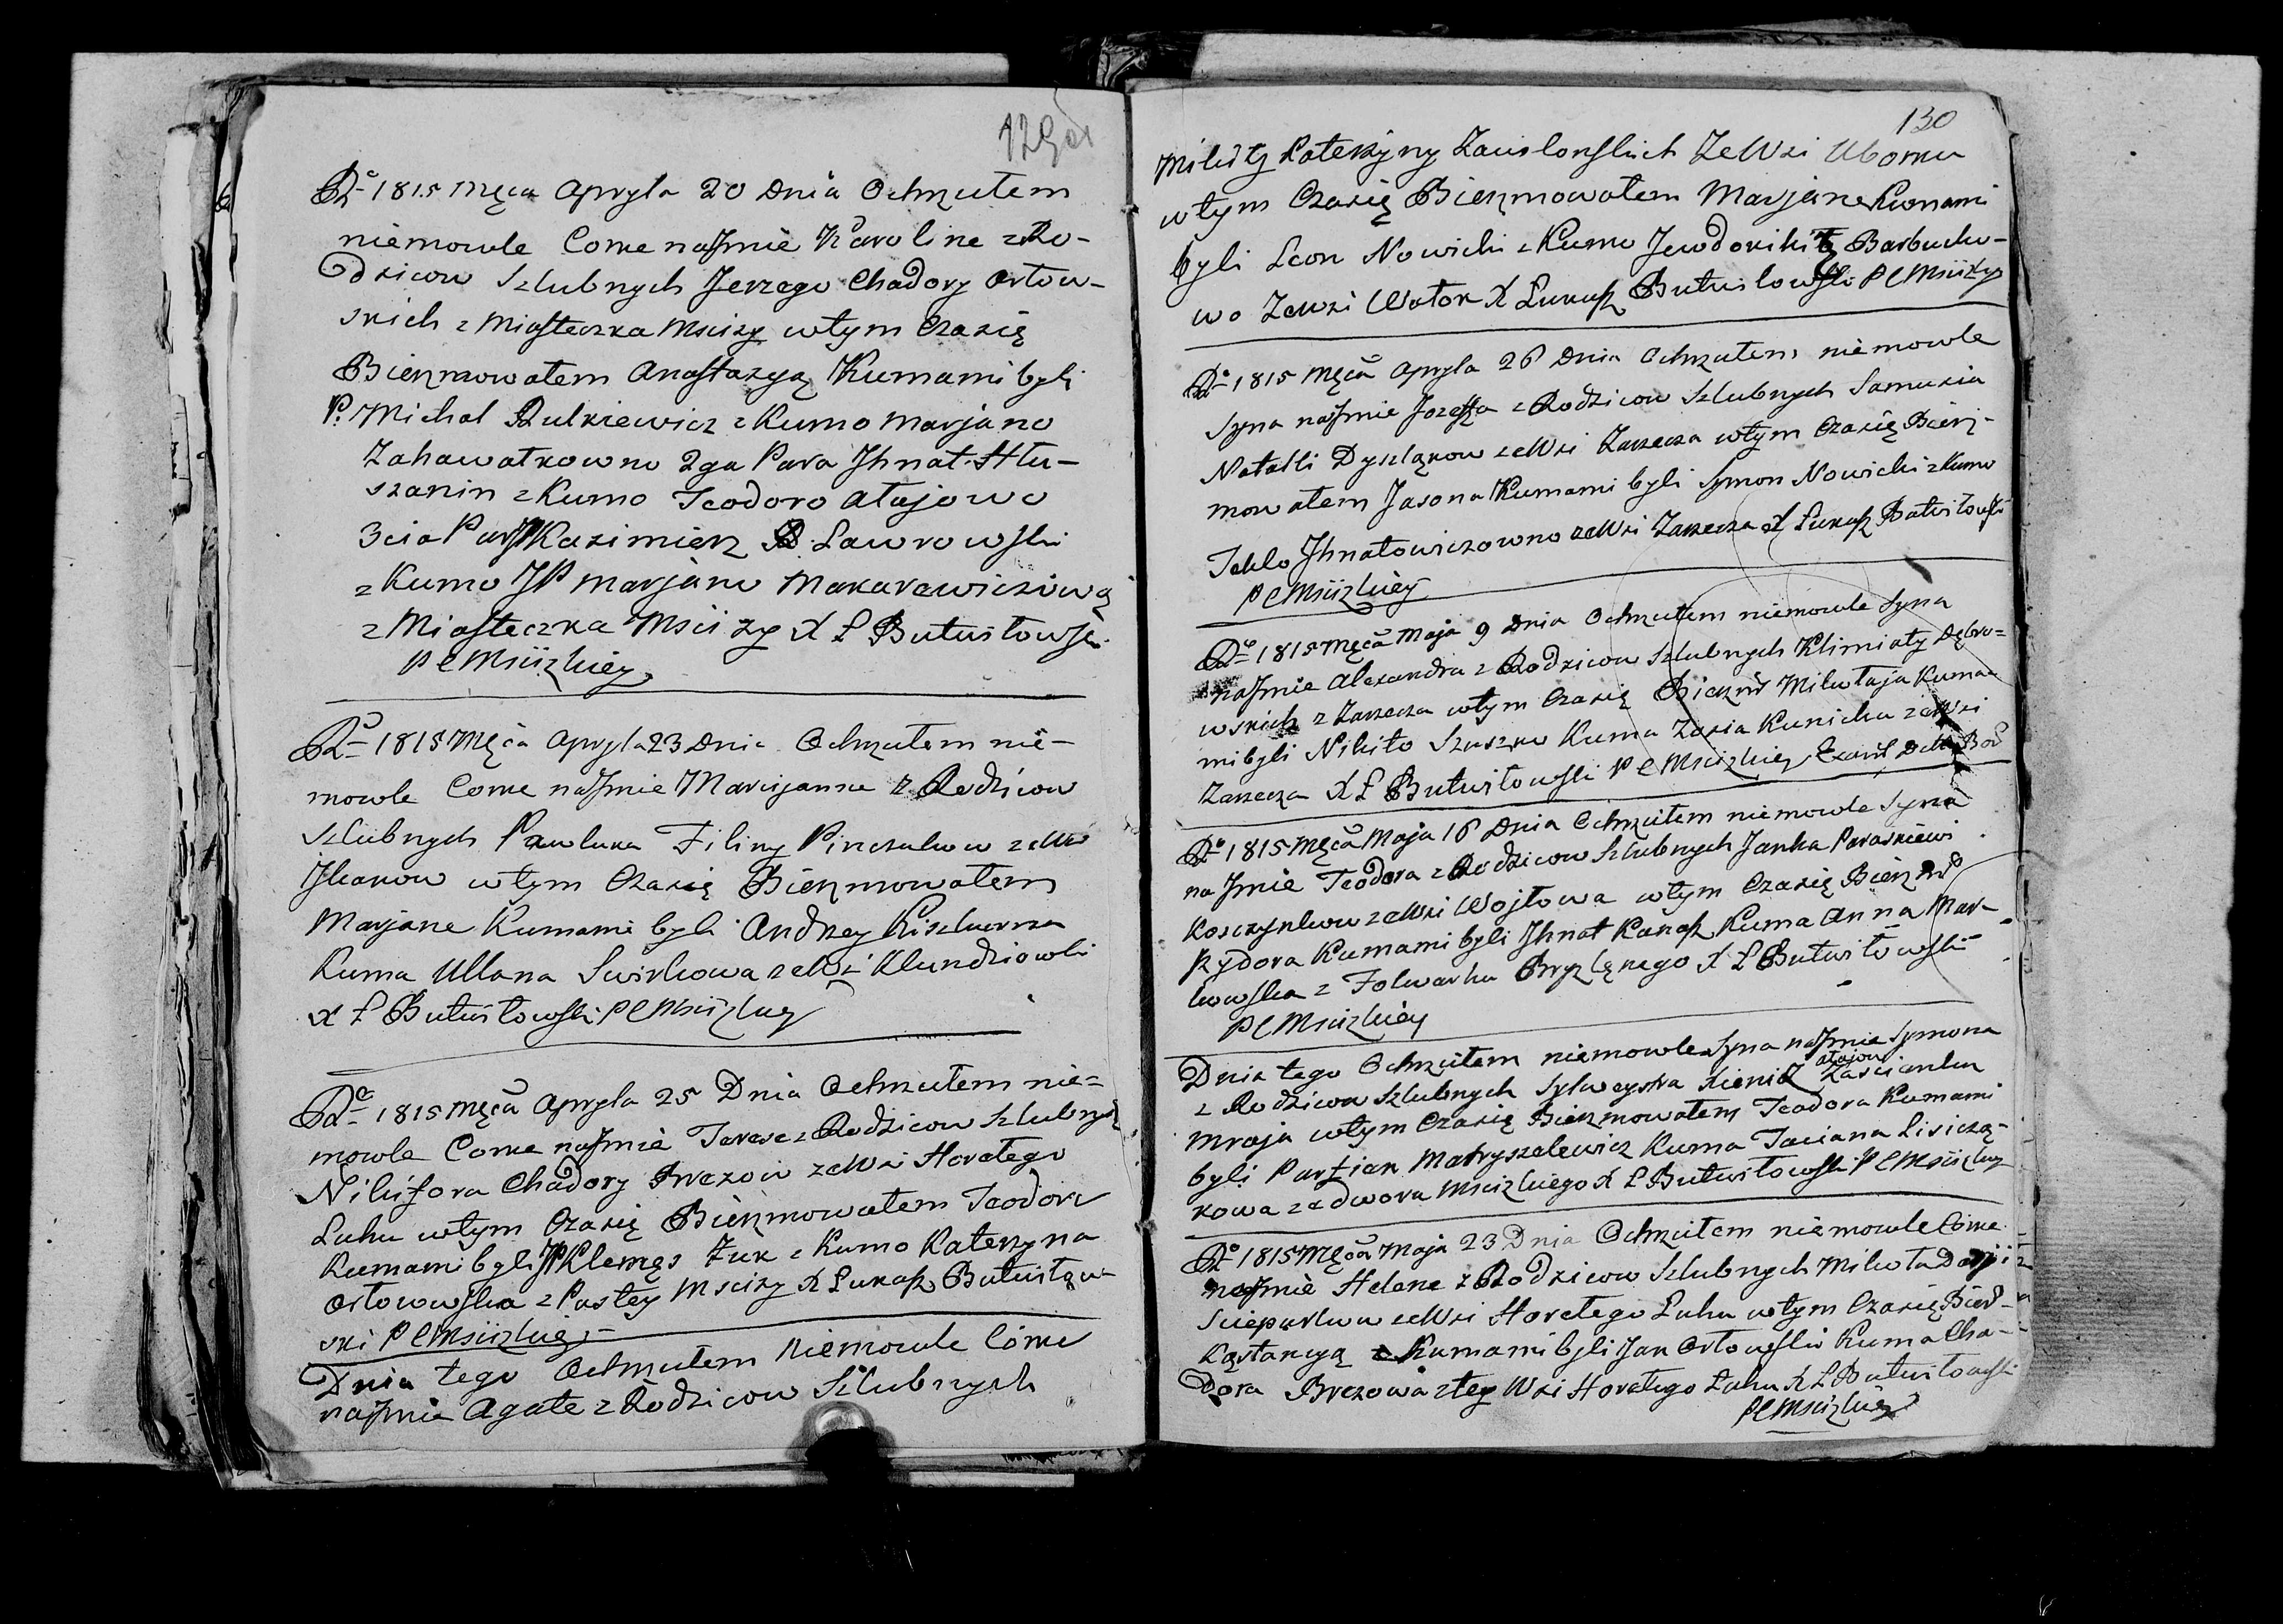 129об
Ro 1815 Męca Apryla 20 Dnia Ochrzciłem
niemowle Corke na Jmie Karoline z Ro-
dzicow Szlubnych Jerzego Chadory Orłow-
skich z Miasteczka Mscizy w tym Czasię
Bierzmowałem Anastazyą Kumami byli
P. Michał Rulkiewicz z Kumo Marjano
Zahawałkowno 2ga Para Jhnat Hłu-
szanin z Kumo Teodoro Ałajowo
3cia Para JP Kazimierz Ławrowski
z Kumo JP Marjano Makarewiczową
z Miasteczka Mscizy X Ł Butwiłowski
P C Msciizkiey
Ro 1815 Męca Apryla 23 Dnia Ochrzciłem nie-
mowle Corke na Jmie Maryanne z Rodzicow
Szlubnych Pawluka Filiny Pinczukow ze Wsi
Jkanow w tym Czasię Bierzmowałem
Marjane Kumami byli Andrzey
Kuma Ullana Swirkowa ze Wsi Klundziowki
X Ł Butwiłowski P C Msciizkiey
Ro 1815 Męca Apryla 25 Dnia Ochrzciłem nie=
mowle Corke na Jmie Terese z Rodzicow Szlubnych
Nikifora Chadory Brezow ze Wsi Horełego
Łuhu w tym Czasię Bierzmowałem Teodora
Kumami byli JP Klemęs Żuk z Kumo Katerzyna
Orłowowska z Pustey Mscizy X Łukasz Butwiłow-
ski P C Msciizkiey
Dnia tego Ochrzciłem niemowle Córke
na Jmie Agate z Rodzicow Szlubnych
130
Mikity Katerzyny Zauslonskich Ze Wsi Uborku
w tym Czasię Bierzmowałem Marjane Kumami
byli Leon Nowicki z Kumo Jewdoki
wo Ze wsi Wołok X Łukasz Butwiłowski P C Msciizkiey
Ro 1815 Męca Apryla 26 Dnia Ochrzciłem niemowle
Syna na Jmie Jozefa z Rodzicow Szlubnych Samusia
Natalli Dyszląkow ze Wsi Zarzecza w tym Czasię Bierz-
mowałem Jasona Kumami byli Symon Nowicki z Kumo
Teklo Jhnatowiczowno ze Wsi Zarzecza X Łukasz Butwiłowski
P C Msciizkiey
Ro 1815 Męca Maja 9 Dnia Ochrzciłem niemowle Syna
na Jmie Alexandra z Rodzicow Szlubnych Klimiaty Dąbro=
wskich z Zarzecza w tym Czasię Bierzm Mikołaja Kuma-
mi byli Nikito Szuszko Kuma Zosia Kunicka ze Wsi
Zarzecza X Ł Butwiłowski P C Msciizkiey
Ro 1815 Męca Maja 16 Dnia Ochrzciłem niemowle Syna
na Jmie Teodora z Rodzicow Szlubnych Janka Paraskiewi
Koszczynkow ze Wsi Wojłowa w tym Czasię Bierzm
Jzydora Kumami byli Jhnat Kanasz Kuma Anna Mar-
kowska z Folwarku X Ł Butwiłowski
P C Msciizkiey
Dnia tego Ochrzciłem niemowle Syna na Jmie Symona
z Rodzicow Szlubnych Sylwestra Xieni Ałajow Zascianku
Mroja w tym Czasię Bierzmowałem Teodora Kumami
byli Parfian Matryszelewicz Kuma Taciana Lisiczą-
kowa ze dwora Mscizkiego X Ł Butwiłowski P C Msciizkiey
Ro 1815 Męca Maja 23 Dnia Ochrzciłem niemowle Córke
na Jmie Helene z Rodzicow Szlubnych Mikoła Daryi
Scieparkow ze Wsi Horełego Łuhu w tym Czasię Bierz-
Kąstancyą z Kumami byli Jan Orłowski Kuma Cha-
dora Brezowa z tey Wsi Horełego Łuhu X Ł Butwiłowski
P C Mscizkiey